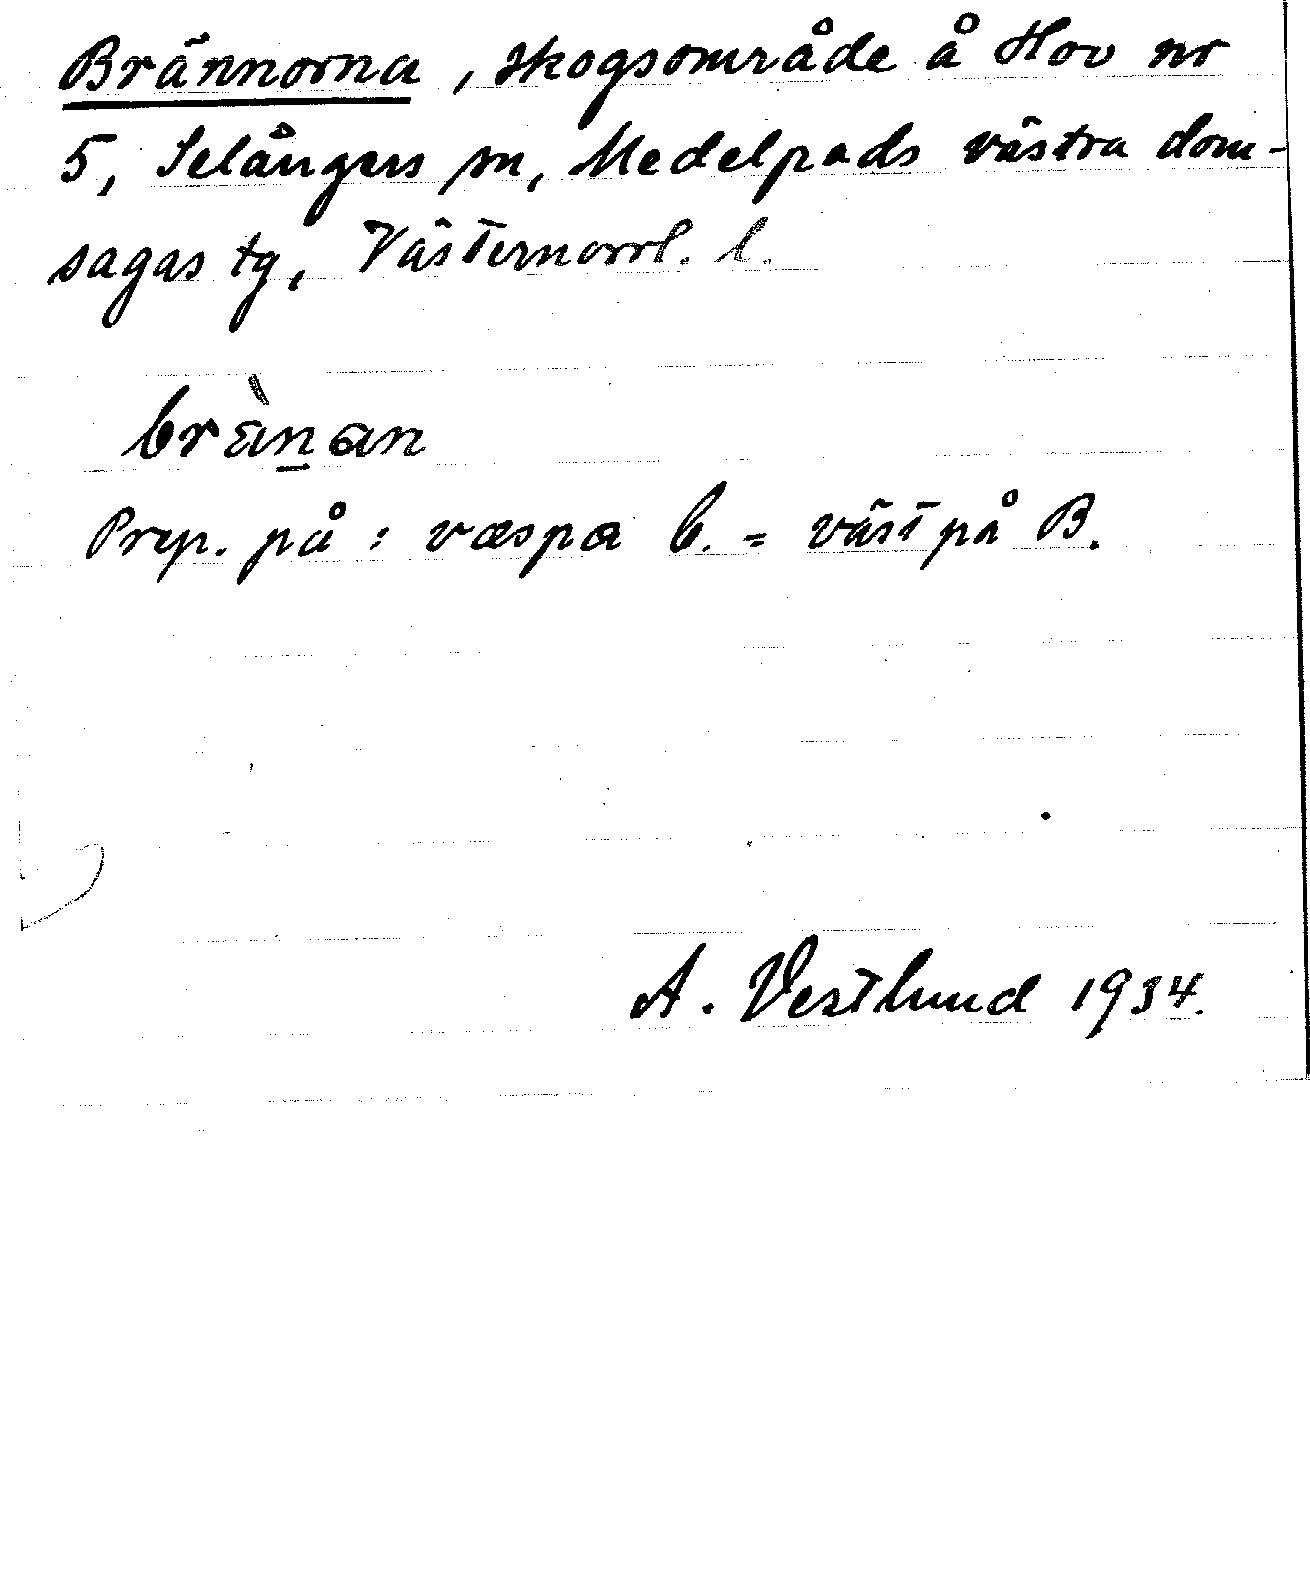 Brännorna, skogsområde å Hov nr
5, Selångers sn, Medelpads västra dom-
sagas tg, Västernorrl. l.
bränan
Prep. på: væspa b. = väst på B.
A. Vestlund 1934.